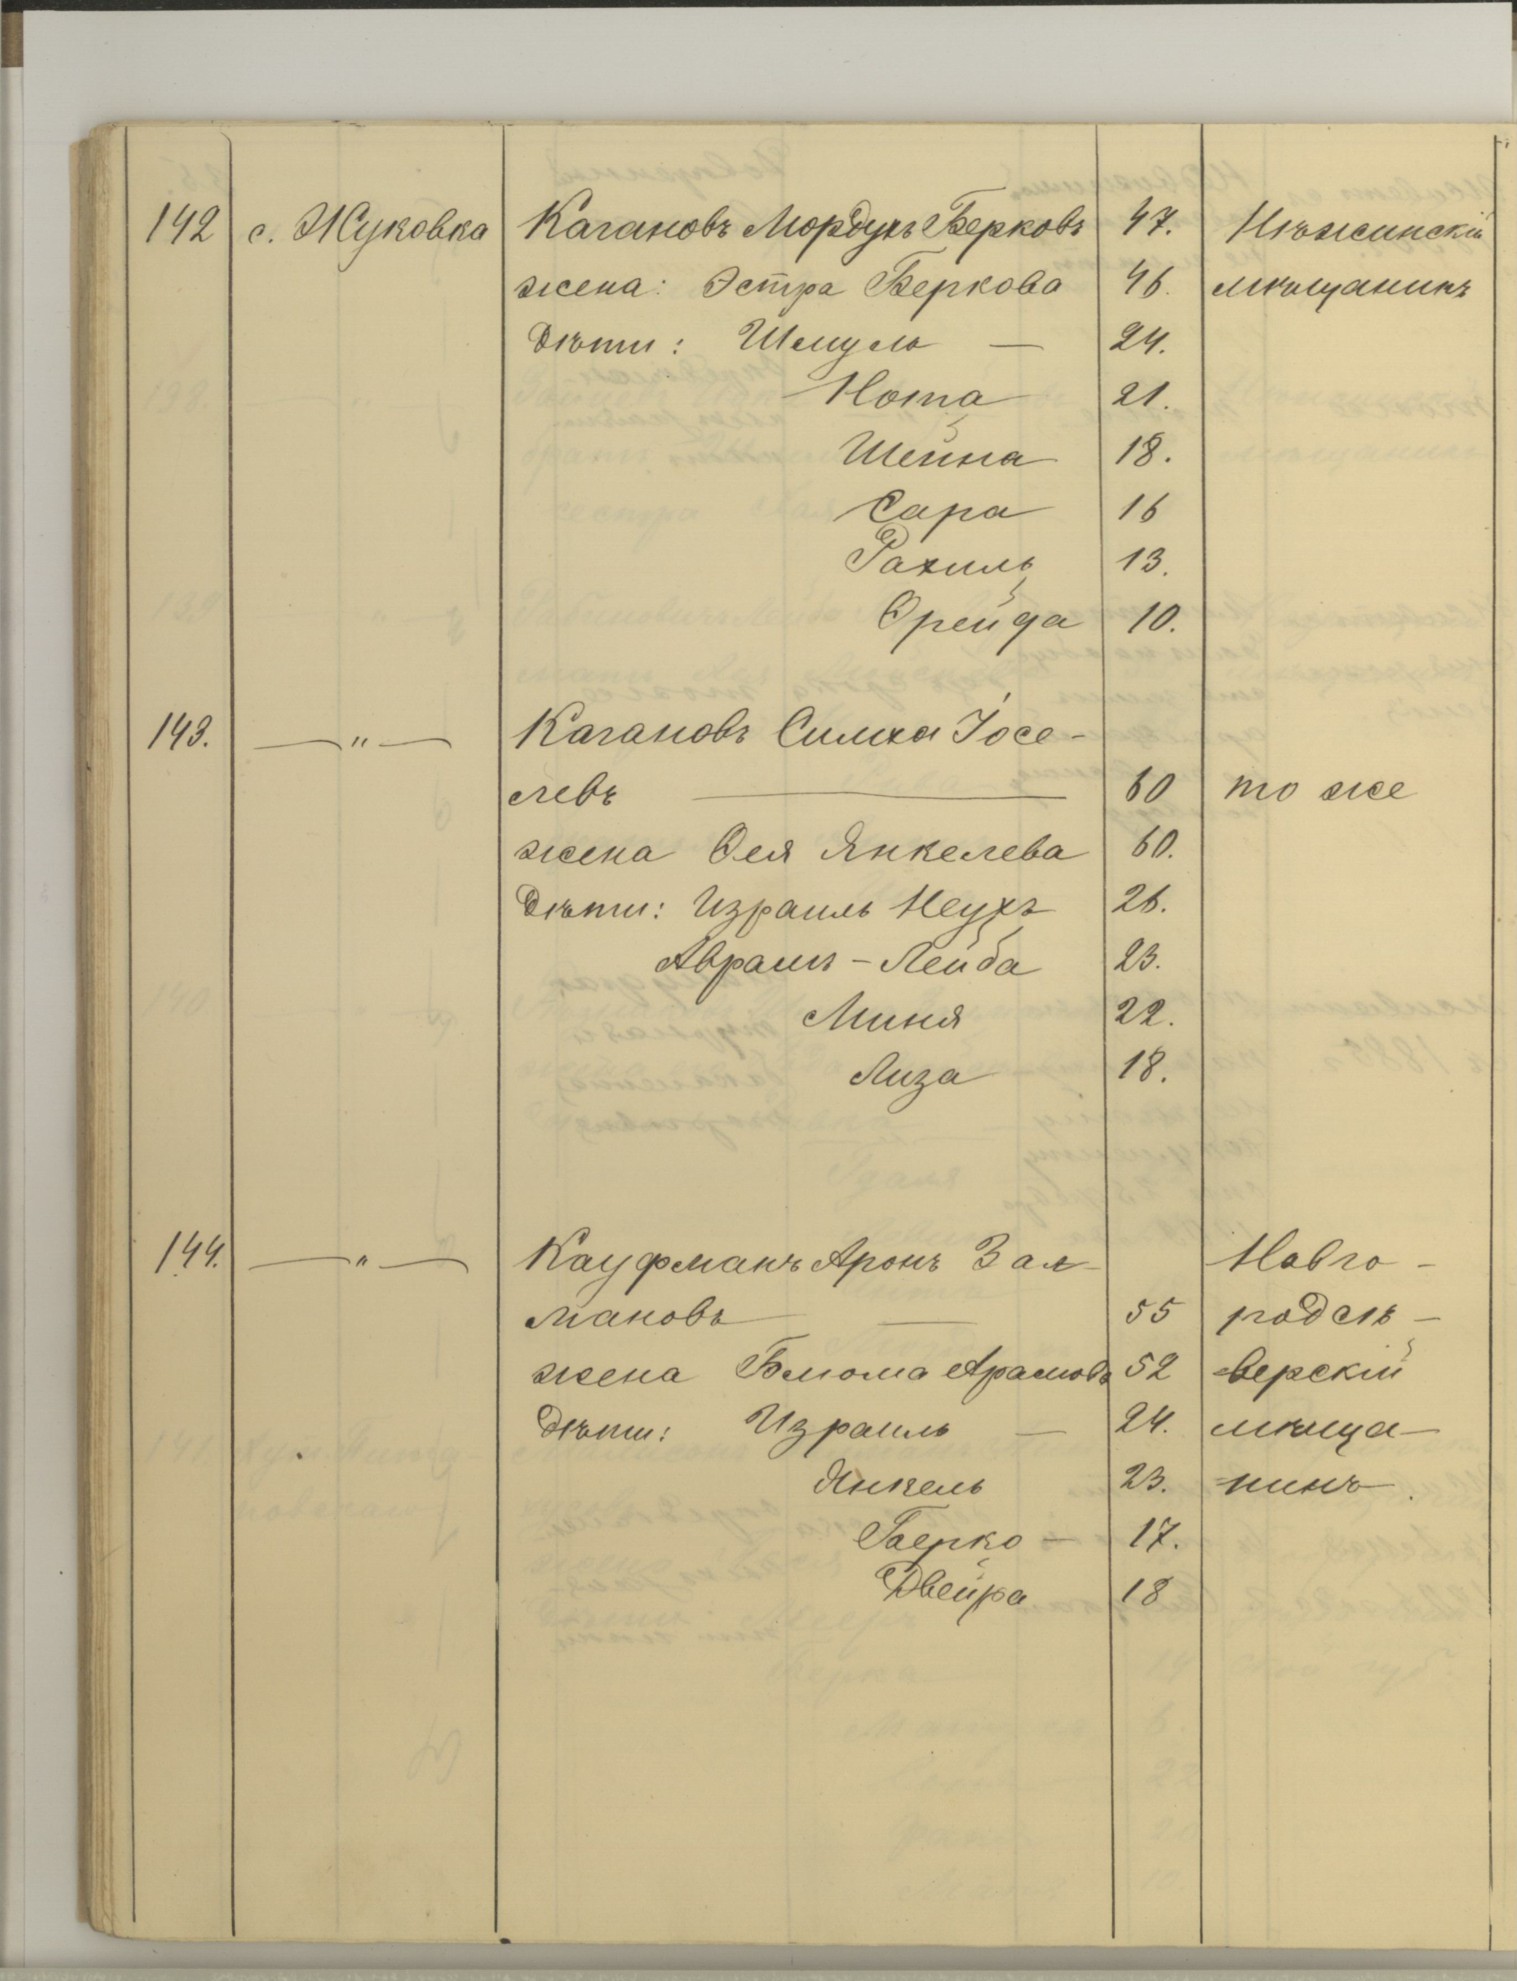 142 с. Жуковка Кагановъ Мордухъ Берковъ 47. Нѣжинскій
жена: Эстра Беркова 46. мѣщанинъ
Дѣти: Шмуль — 24.
Нота 21.
Шейна 18.
Сара 16
Рахиль 13.
Фрейда 10.
143. —〃— Кагановъ Симха Іосе-
левъ — 60 то же
жена Фея Янкелева 60.
Дѣти: Израиль Неухъ 26.
Абрамъ-Лейба 23.
Миня 22.
Лиза 18.
144. —〃— Кауфманъ Аронъ Зал- Новго-
мановъ — 55 родсѣ-
жена Блюма Арамовъ 52 верскій
Дѣти: Израиль — 24. мѣща-
Янкель 23. нинъ.
Берко — 17.
Двейра 18